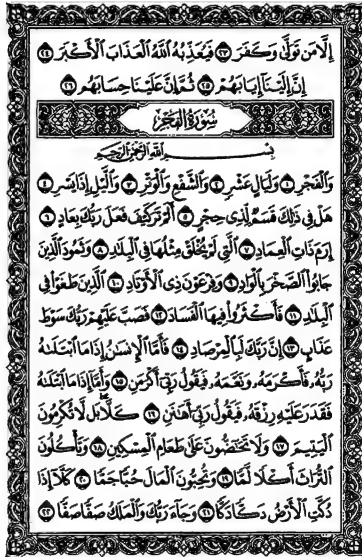 إِلَّا مَن تَوَلَّىٰ وَكَفَرَ ٢٣ فَيُعَذِّبُهُ ٱللَّهُ ٱلْعَذَابَ ٱلْأَكْبَرَ ٢٤
إِنَّ إِلَيْنَآ إِيَابَهُمْ ٢٥ ثُمَّ إِنَّ عَلَيْنَا حِسَابَهُم ٢٦
سُورَةُ الفَجْرِ
بِسْمِ ٱللَّهِ ٱلرَّحْمَٰنِ ٱلرَّحِيمِ
وَٱلْفَجْرِ ١ وَلَيَالٍ عَشْرٍ ٢ وَٱلشَّفْعِ وَٱلْوَتْرِ ٣ وَٱلَّيْلِ إِذَا يَسْرِ ٤
هَلْ فِي ذَٰلِكَ قَسَمٌ لِّذِي حِجْرٍ ٥ أَلَمْ تَرَ كَيْفَ فَعَلَ رَبُّكَ بِعَادٍ ٦
إِرَمَ ذَاتِ ٱلْعِمَادِ ٧ ٱلَّتِي لَمْ يُخْلَقْ مِثْلُهَا فِي ٱلْبِلَٰدِ ٨ وَثَمُودَ ٱلَّذِينَ
جَابُوا۟ ٱلصَّخْرَ بِٱلْوَادِ ٩ وَفِرْعَوْنَ ذِي ٱلْأَوْتَادِ ١٠ ٱلَّذِينَ طَغَوْا۟ فِي
ٱلْبِلَٰدِ ١١ فَأَكْثَرُوا۟ فِيهَا ٱلْفَسَادَ ١٢ فَصَبَّ عَلَيْهِمْ رَبُّكَ سَوْطَ
عَذَابٍ ١٣ إِنَّ رَبَّكَ لَبِٱلْمِرْصَادِ ١٤ فَأَمَّا ٱلْإِنسَٰنُ إِذَا مَا ٱبْتَلَىٰهُ
رَبُّهُۥ فَأَكْرَمَهُۥ وَنَعَّمَهُۥ فَيَقُولُ رَبِّيٓ أَكْرَمَنِ ١٥ وَأَمَّآ إِذَا مَا ٱبْتَلَىٰهُ
فَقَدَرَ عَلَيْهِ رِزْقَهُۥ فَيَقُولُ رَبِّيٓ أَهَٰنَنِ ١٦ كَلَّا ۖ بَل لَّا تُكْرِمُونَ
ٱلْيَتِيمَ ١٧ وَلَا تَحَٰٓضُّونَ عَلَىٰ طَعَامِ ٱلْمِسْكِينِ ١٨ وَتَأْكُلُونَ
ٱلتُّرَاثَ أَكْلًا لَّمًّا ١٩ وَتُحِبُّونَ ٱلْمَالَ حُبًّا جَمًّا ٢٠ كَلَّآ إِذَا
دُكَّتِ ٱلْأَرْضُ دَكًّا دَكًّا ٢١ وَجَآءَ رَبُّكَ وَٱلْمَلَكُ صَفًّا صَفًّا ٢٢